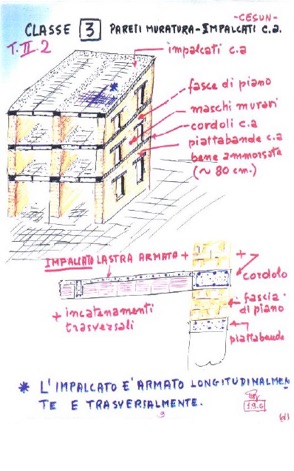 -CESUN-
CLASSE 3 PARETI MURATURA-IMPALCATI C.A.
T.II.2
impalcati c.a
*
fasce di piano
maschi murari
cordoli c.a
piattabande c.a
bene ammorsate
(~ 80 cm.)
IMPALCATO LASTRA ARMATO + +
cordolo
+ incatenamenti
trasversali
fascia
di piano
piattabande
* L'IMPALCATO E' ARMATO LONGITUDINALMEN-
TE E TRASVERSALMENTE.